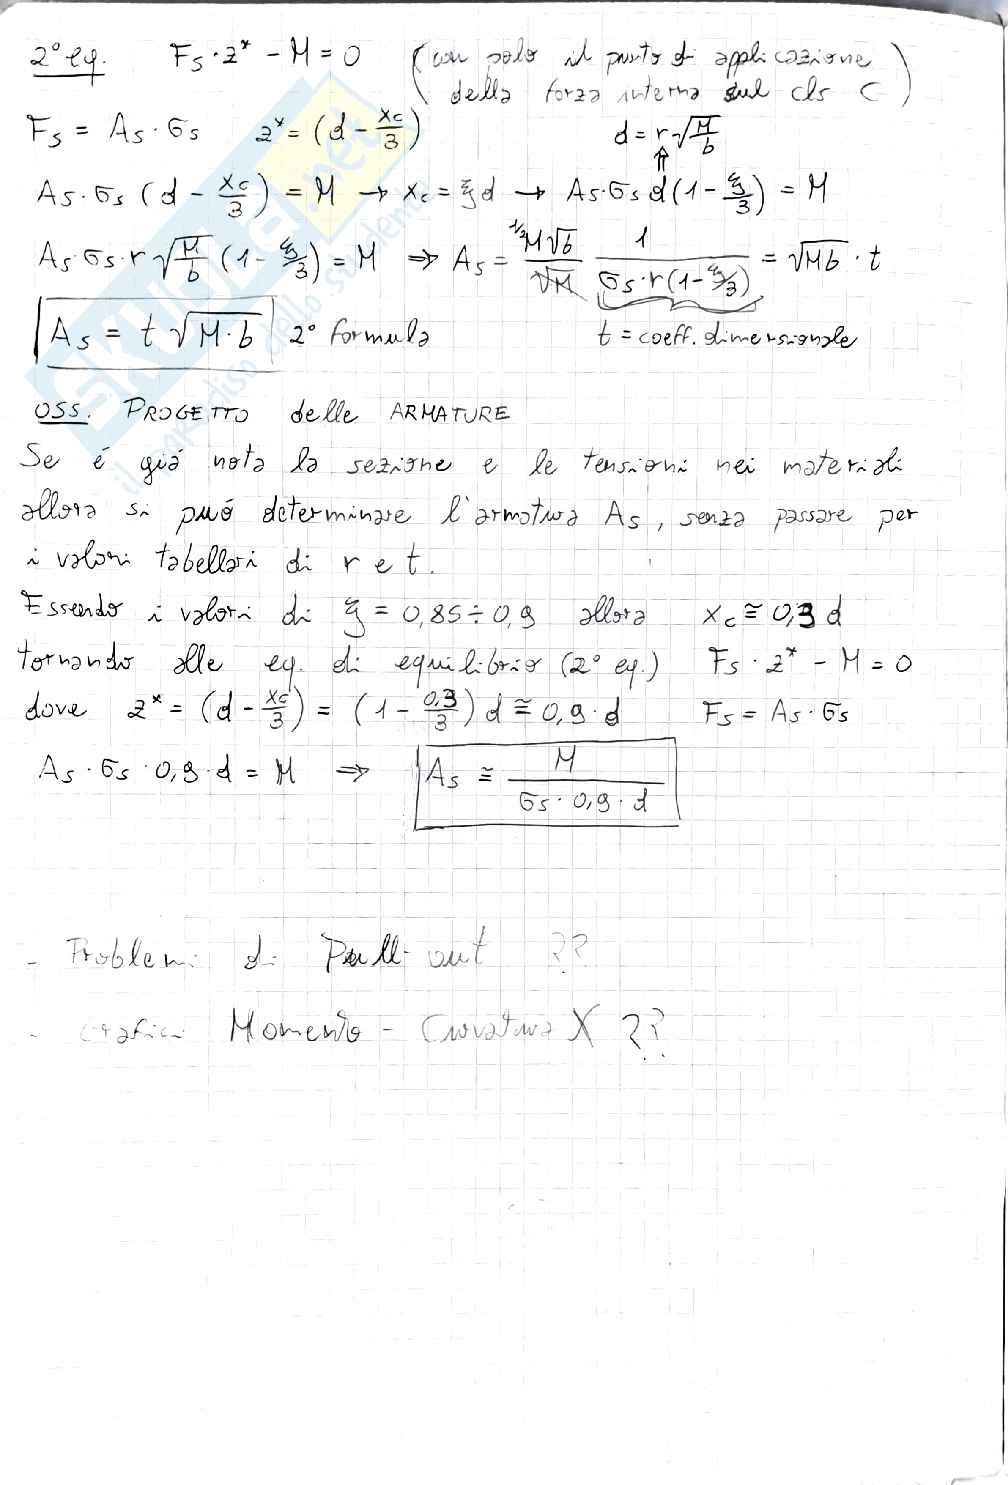 2° eq. Fs · z* - M = 0 (con polo il punto di applicazione
della forza interna sul cls C)
Fs = As · σs z* = (d - xc/3) d = r√(M/b)
As · σs (d - xc/3) = M → xc = ξd → As · σs d (1 - ξ/3) = M
As · σs · r √(M/b) (1 - ξ/3) = M ⇒ As = M^1/2 √b / √M · 1 / (σs · r (1 - ξ/3)) = √Mb · t
As = t √M·b 2° formula t = coeff. dimensionale
OSS. PROGETTO delle ARMATURE
Se é giá nota la sezione e le tensioni nei materiali
allora si puó determinare l'armatura As, senza passare per
i valori tabellari di r e t.
Essendo i valori di ξ = 0,85 ÷ 0,9 allora xc ≅ 0,3 d
tornando alle eq. di equilibrio (2° eq.) Fs · z* - M = 0
dove z* = (d - xc/3) = (1 - 0,3/3) d ≅ 0,9 · d Fs = As · σs
As · σs · 0,9 · d = M ⇒ As ≅ M / (σs · 0,9 · d)
- Problemi di Pull-out ??
- Grafici Momento - Curvatura X ??
SKUOLA.net
il paradiso dello studente